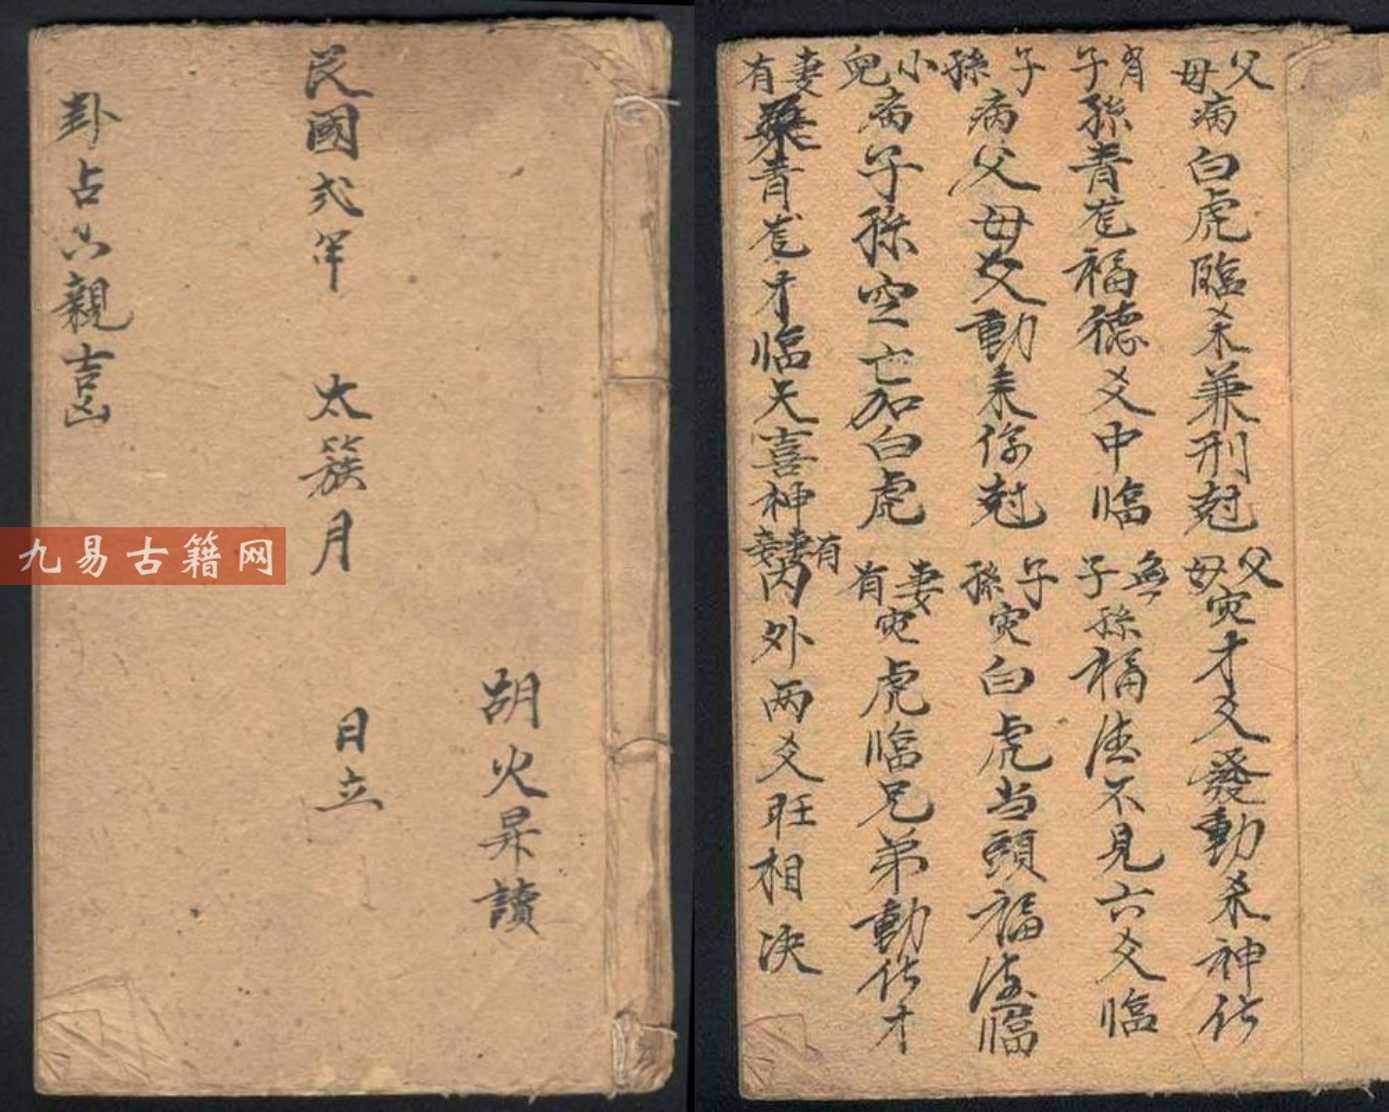 卦占六親吉凶
民國弍年 太簇月 日立
胡火昇讀
九易古籍网
父母病白虎臨杀兼刑尅 父母灾才爻發動杀神化
有子子孫青龙福德爻中临 無子子孫福德不見六爻臨
子孫病父母爻動来你尅 子孫灾白虎当頭福德臨
小兒病子孫空亡加白虎 妻有灾虎临兄弟動化才
妻有青龙才临天喜神 有妻妾内外两爻旺相决